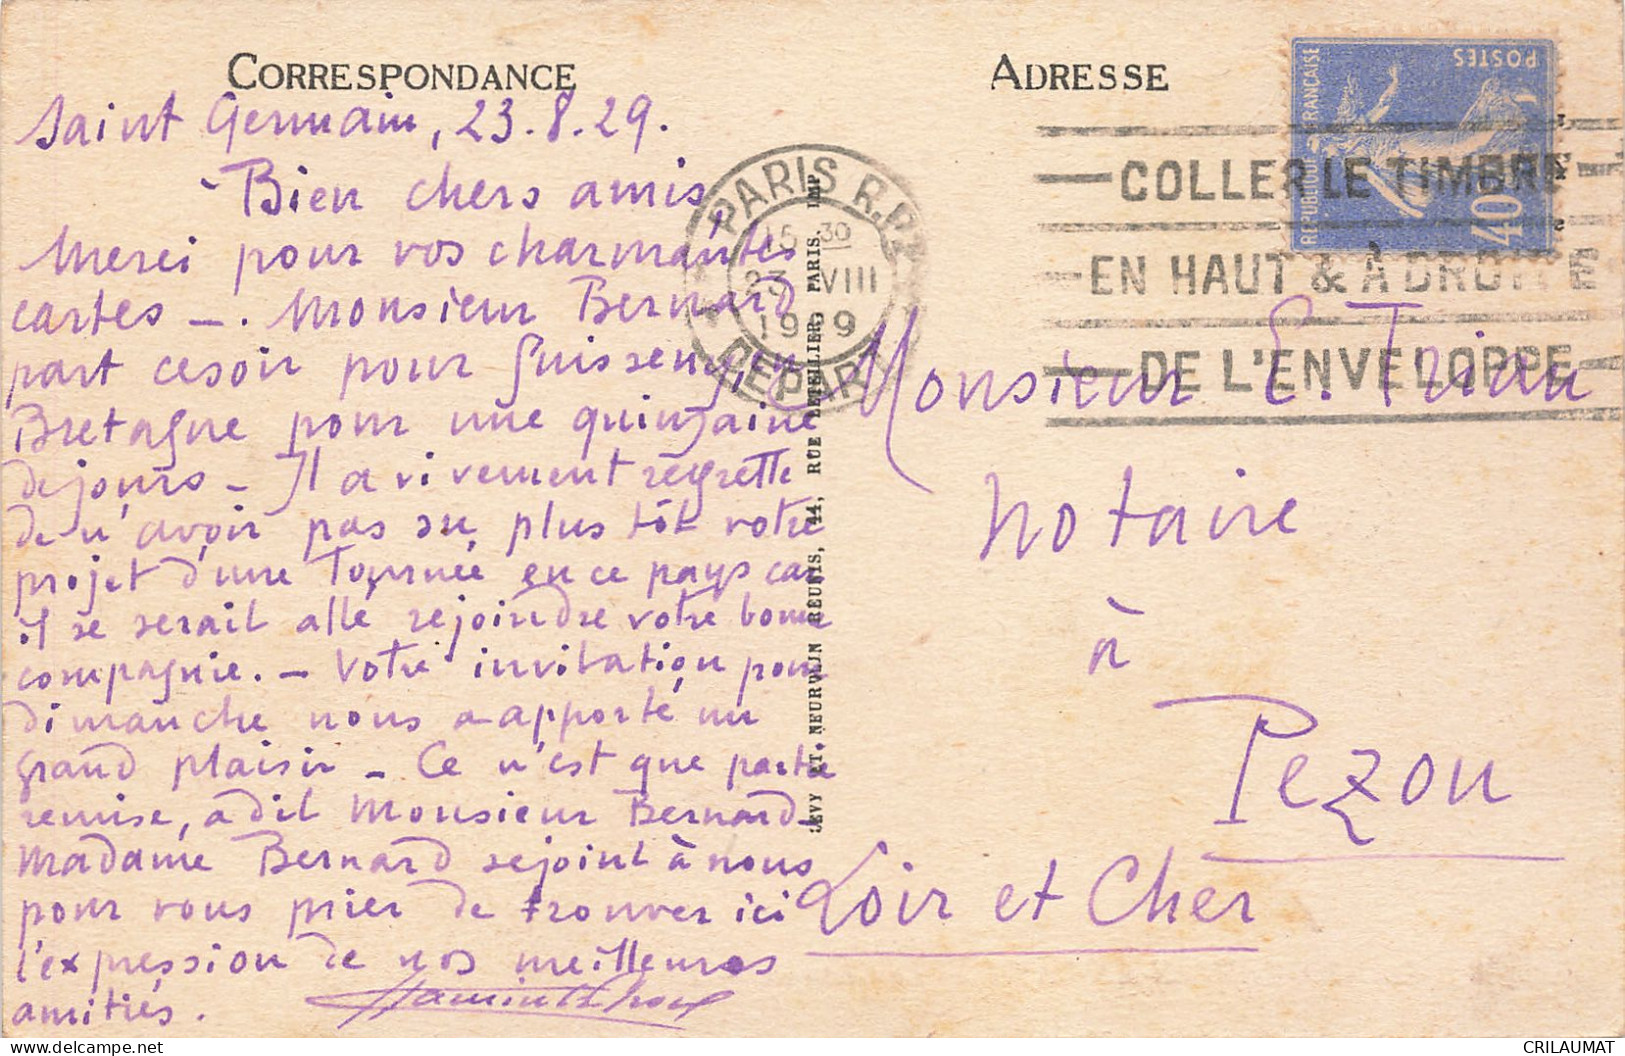 CORRESPONDANCE
Saint Germain, 23.8.29.
Bien chers amis,
Merci pour vos charmantes
cartes -. Monsieur Bernard
part ce soir pour Guisseny, en
Bretagne pour une quinzaine
de jours - Il a vivement regretté
de n'avoir pas su plus tôt votre
projet d'une Tournée en ce pays car
il se serait allé rejoindre votre bonne
compagnie. - Votre invitation pour
dimanche nous a apporté un
grand plaisir - Ce n'est que partie
remise, a dit Monsieur Bernard -
Madame Bernard se joint à nous
pour vous prier de trouver ici
l'expression de nos meilleures
amitiés.
ADRESSE
Monsieur E. Triau
notaire
à
Pezou
Loir et Cher
PARIS R.P.
15 30
23 VIII
1929
DEPART
COLLER LE TIMBRE
EN HAUT & À DROITE
DE L'ENVELOPPE
REPUBLIQUE FRANÇAISE
POSTES
40c
LEVY ET NEURDEIN REUNIS, 44, RUE LETELLIER, PARIS. IMP
CRILAUMAT
delcampe.net